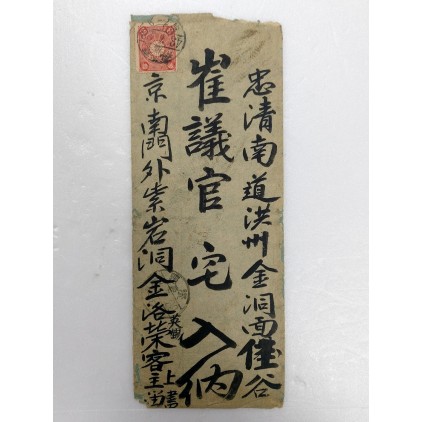 忠清南道洪州金洞面僿谷
崔議官宅入納
京南門外紫岩洞金洛榮客主上書